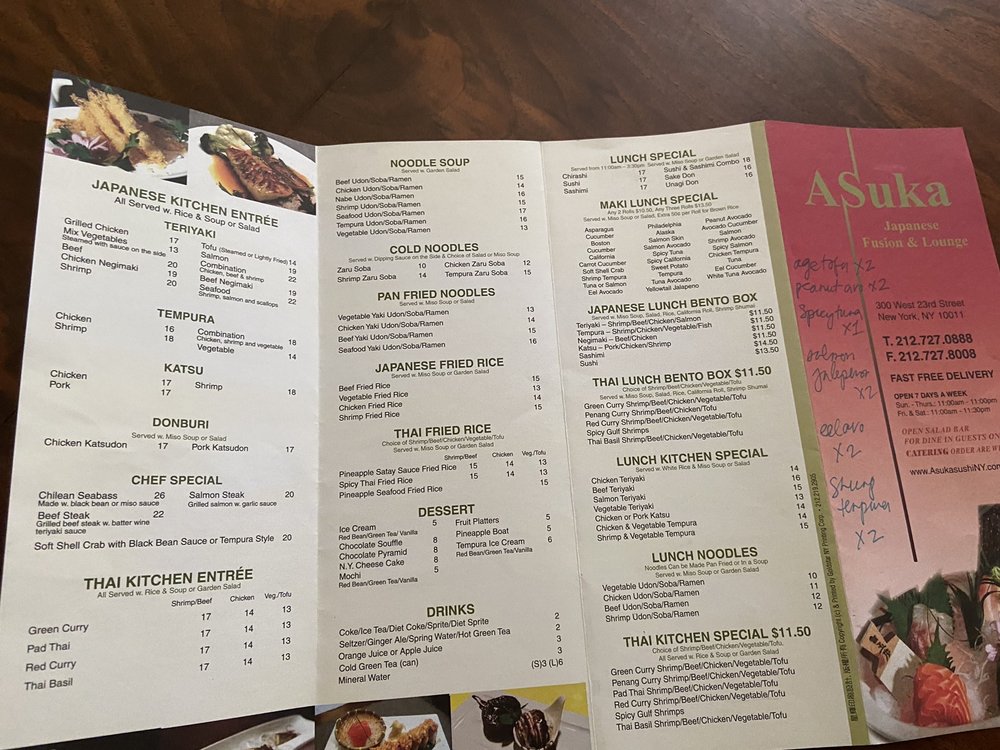 JAPANESE KITCHEN ENTRÉE
All Served w. Rice & Soup or Salad
TERIYAKI
Grilled Chicken 17
Mix Vegetables 13
Steamed with sauce on the side
Beef 20
Chicken Negimaki 19
Shrimp 20
Tofu (Steamed or Lightly Fried) 14
Salmon 20
Combination 22
Chicken, beef & shrimp
Beef Negimaki 19
Seafood 22
Shrimp, salmon and scallops
TEMPURA
Chicken 16
Shrimp 18
Combination 18
Chicken, shrimp and vegetable
Vegetable 14
KATSU
Chicken 17
Pork 17
Shrimp 18
DONBURI
Served w. Miso Soup or Salad
Chicken Katsudon 17 Pork Katsudon 17
CHEF SPECIAL
Chilean Seabass 26
Made w. black bean or miso sauce
Beef Steak 22
Grilled beef steak w. batter wine
teriyaki sauce
Salmon Steak 20
Grilled salmon w. garlic sauce
Soft Shell Crab with Black Bean Sauce or Tempura Style 20
THAI KITCHEN ENTRÉE
All Served w. Rice & Soup or Garden Salad
Shrimp/Beef Chicken Veg./Tofu
Green Curry 17 14 13
Pad Thai 17 14 13
Red Curry 17 14 13
Thai Basil 17 14 13
NOODLE SOUP
Served w. Garden Salad
Beef Udon/Soba/Ramen 15
Chicken Udon/Soba/Ramen 14
Nabe Udon/Soba/Ramen 16
Shrimp Udon/Soba/Ramen 15
Seafood Udon/Soba/Ramen 17
Tempura Udon/Soba/Ramen 16
Vegetable Udon/Soba/Ramen 13
COLD NOODLES
Served w. Dipping Sauce on the Side & Choice of Salad or Miso Soup
Zaru Soba 10 Chicken Zaru Soba 12
Shrimp Zaru Soba 14 Tempura Zaru Soba 15
PAN FRIED NOODLES
Served w. Miso Soup or Salad
Vegetable Yaki Udon/Soba/Ramen 13
Chicken Yaki Udon/Soba/Ramen 14
Beef Yaki Udon/Soba/Ramen 15
Seafood Yaki Udon/Soba/Ramen 16
JAPANESE FRIED RICE
Served w. Miso Soup or Garden Salad
Beef Fried Rice 15
Vegetable Fried Rice 13
Chicken Fried Rice 14
Shrimp Fried Rice 15
THAI FRIED RICE
Choice of Shrimp/Beef/Chicken/Vegetable/Tofu
Served w. Miso Soup or Garden Salad
Shrimp/Beef Chicken Veg./Tofu
Pineapple Satay Sauce Fried Rice 15 14 13
Spicy Thai Fried Rice 15 14 13
Pineapple Seafood Fried Rice 15
DESSERT
Ice Cream 5
Red Bean/Green Tea/Vanilla
Chocolate Souffle 8
Chocolate Pyramid 8
N.Y. Cheese Cake 8
Mochi 5
Red Bean/Green Tea/Vanilla
Fruit Platters 5
Pineapple Boat 5
Tempura Ice Cream 6
Red Bean/Green Tea/Vanilla
DRINKS
Coke/Ice Tea/Diet Coke/Sprite/Diet Sprite 2
Seltzer/Ginger Ale/Spring Water/Hot Green Tea 2
Orange Juice or Apple Juice 3
Cold Green Tea (can) 3
Mineral Water (S)3 (L)6
LUNCH SPECIAL
Served from 11:00am – 3:30pm Served w. Miso Soup or Garden Salad
Chirashi 17
Sushi 17
Sashimi 17
Sushi & Sashimi Combo 18
Sake Don 16
Unagi Don 16
MAKI LUNCH SPECIAL
Any 2 Rolls $10.50, Any Three Rolls $13.50
Served w. Miso Soup or Salad, Extra 50¢ per Roll for Brown Rice
Asparagus
Cucumber
Boston
Cucumber
California
Carrot Cucumber
Soft Shell Crab
Shrimp Tempura
Tuna or Salmon
Eel Avocado
Philadelphia
Alaska
Salmon Skin
Salmon Avocado
Spicy Tuna
Spicy California
Sweet Potato
Tempura
Tuna Avocado
Yellowtail Jalapeno
Peanut Avocado
Avocado Cucumber
Salmon
Shrimp Avocado
Spicy Salmon
Chicken Tempura
Tuna
Eel Cucumber
White Tuna Avocado
JAPANESE LUNCH BENTO BOX
Served w. Miso Soup, Salad, Rice, California Roll, Shrimp Shumai
Teriyaki – Shrimp/Beef/Chicken/Salmon $11.50
Tempura – Shrimp/Chicken/Vegetable/Fish $11.50
Negimaki – Beef/Chicken $11.50
Katsu – Pork/Chicken/Shrimp $11.50
Sashimi $14.50
Sushi $13.50
THAI LUNCH BENTO BOX $11.50
Choice of Shrimp/Beef/Chicken/Vegetable/Tofu
Served w. Miso Soup, Salad, Rice, California Roll, Shrimp Shumai
Green Curry Shrimp/Beef/Chicken/Vegetable/Tofu
Penang Curry Shrimp/Beef/Chicken/Vegetable/Tofu
Red Curry Shrimp/Beef/Chicken/Vegetable/Tofu
Spicy Gulf Shrimps
Thai Basil Shrimp/Beef/Chicken/Vegetable/Tofu
LUNCH KITCHEN SPECIAL
Served w. White Rice & Miso Soup or Salad
Chicken Teriyaki 14
Beef Teriyaki 16
Salmon Teriyaki 15
Vegetable Teriyaki 13
Chicken or Pork Katsu 14
Chicken & Vegetable Tempura 14
Shrimp & Vegetable Tempura 15
LUNCH NOODLES
Noodles Can be Made Pan Fried or In a Soup
Served w. Miso Soup or Garden Salad
Vegetable Udon/Soba/Ramen 10
Chicken Udon/Soba/Ramen 11
Beef Udon/Soba/Ramen 12
Shrimp Udon/Soba/Ramen 12
THAI KITCHEN SPECIAL $11.50
Choice of Shrimp/Beef/Chicken/Vegetable/Tofu
All Served w. Rice & Soup or Garden Salad
Green Curry Shrimp/Beef/Chicken/Vegetable/Tofu
Penang Curry Shrimp/Beef/Chicken/Vegetable/Tofu
Pad Thai Shrimp/Beef/Chicken/Vegetable/Tofu
Red Curry Shrimp/Beef/Chicken/Vegetable/Tofu
Spicy Gulf Shrimps
Thai Basil Shrimp/Beef/Chicken/Vegetable/Tofu
Copyright (c) & Printed by Goldstar NY Printing Corp. • 212.219.2905
ASuka
Japanese
Fusion & Lounge
age tofu x2
peanut avo x2
spicy tuna
x1
salmon
Jalepeno
x2
eel avo
x2
Shrimp
tempura
x2
300 West 23rd Street
New York, NY 10011
T. 212.727.0888
F. 212.727.8008
FAST FREE DELIVERY
OPEN 7 DAYS A WEEK
Sun. - Thurs.: 11:00am - 11:00pm
Fri. & Sat.: 11:00am - 11:30pm
OPEN SALAD BAR
FOR DINE IN GUESTS ON
CATERING ORDER ARE WE
www.AsukasushiNY.com